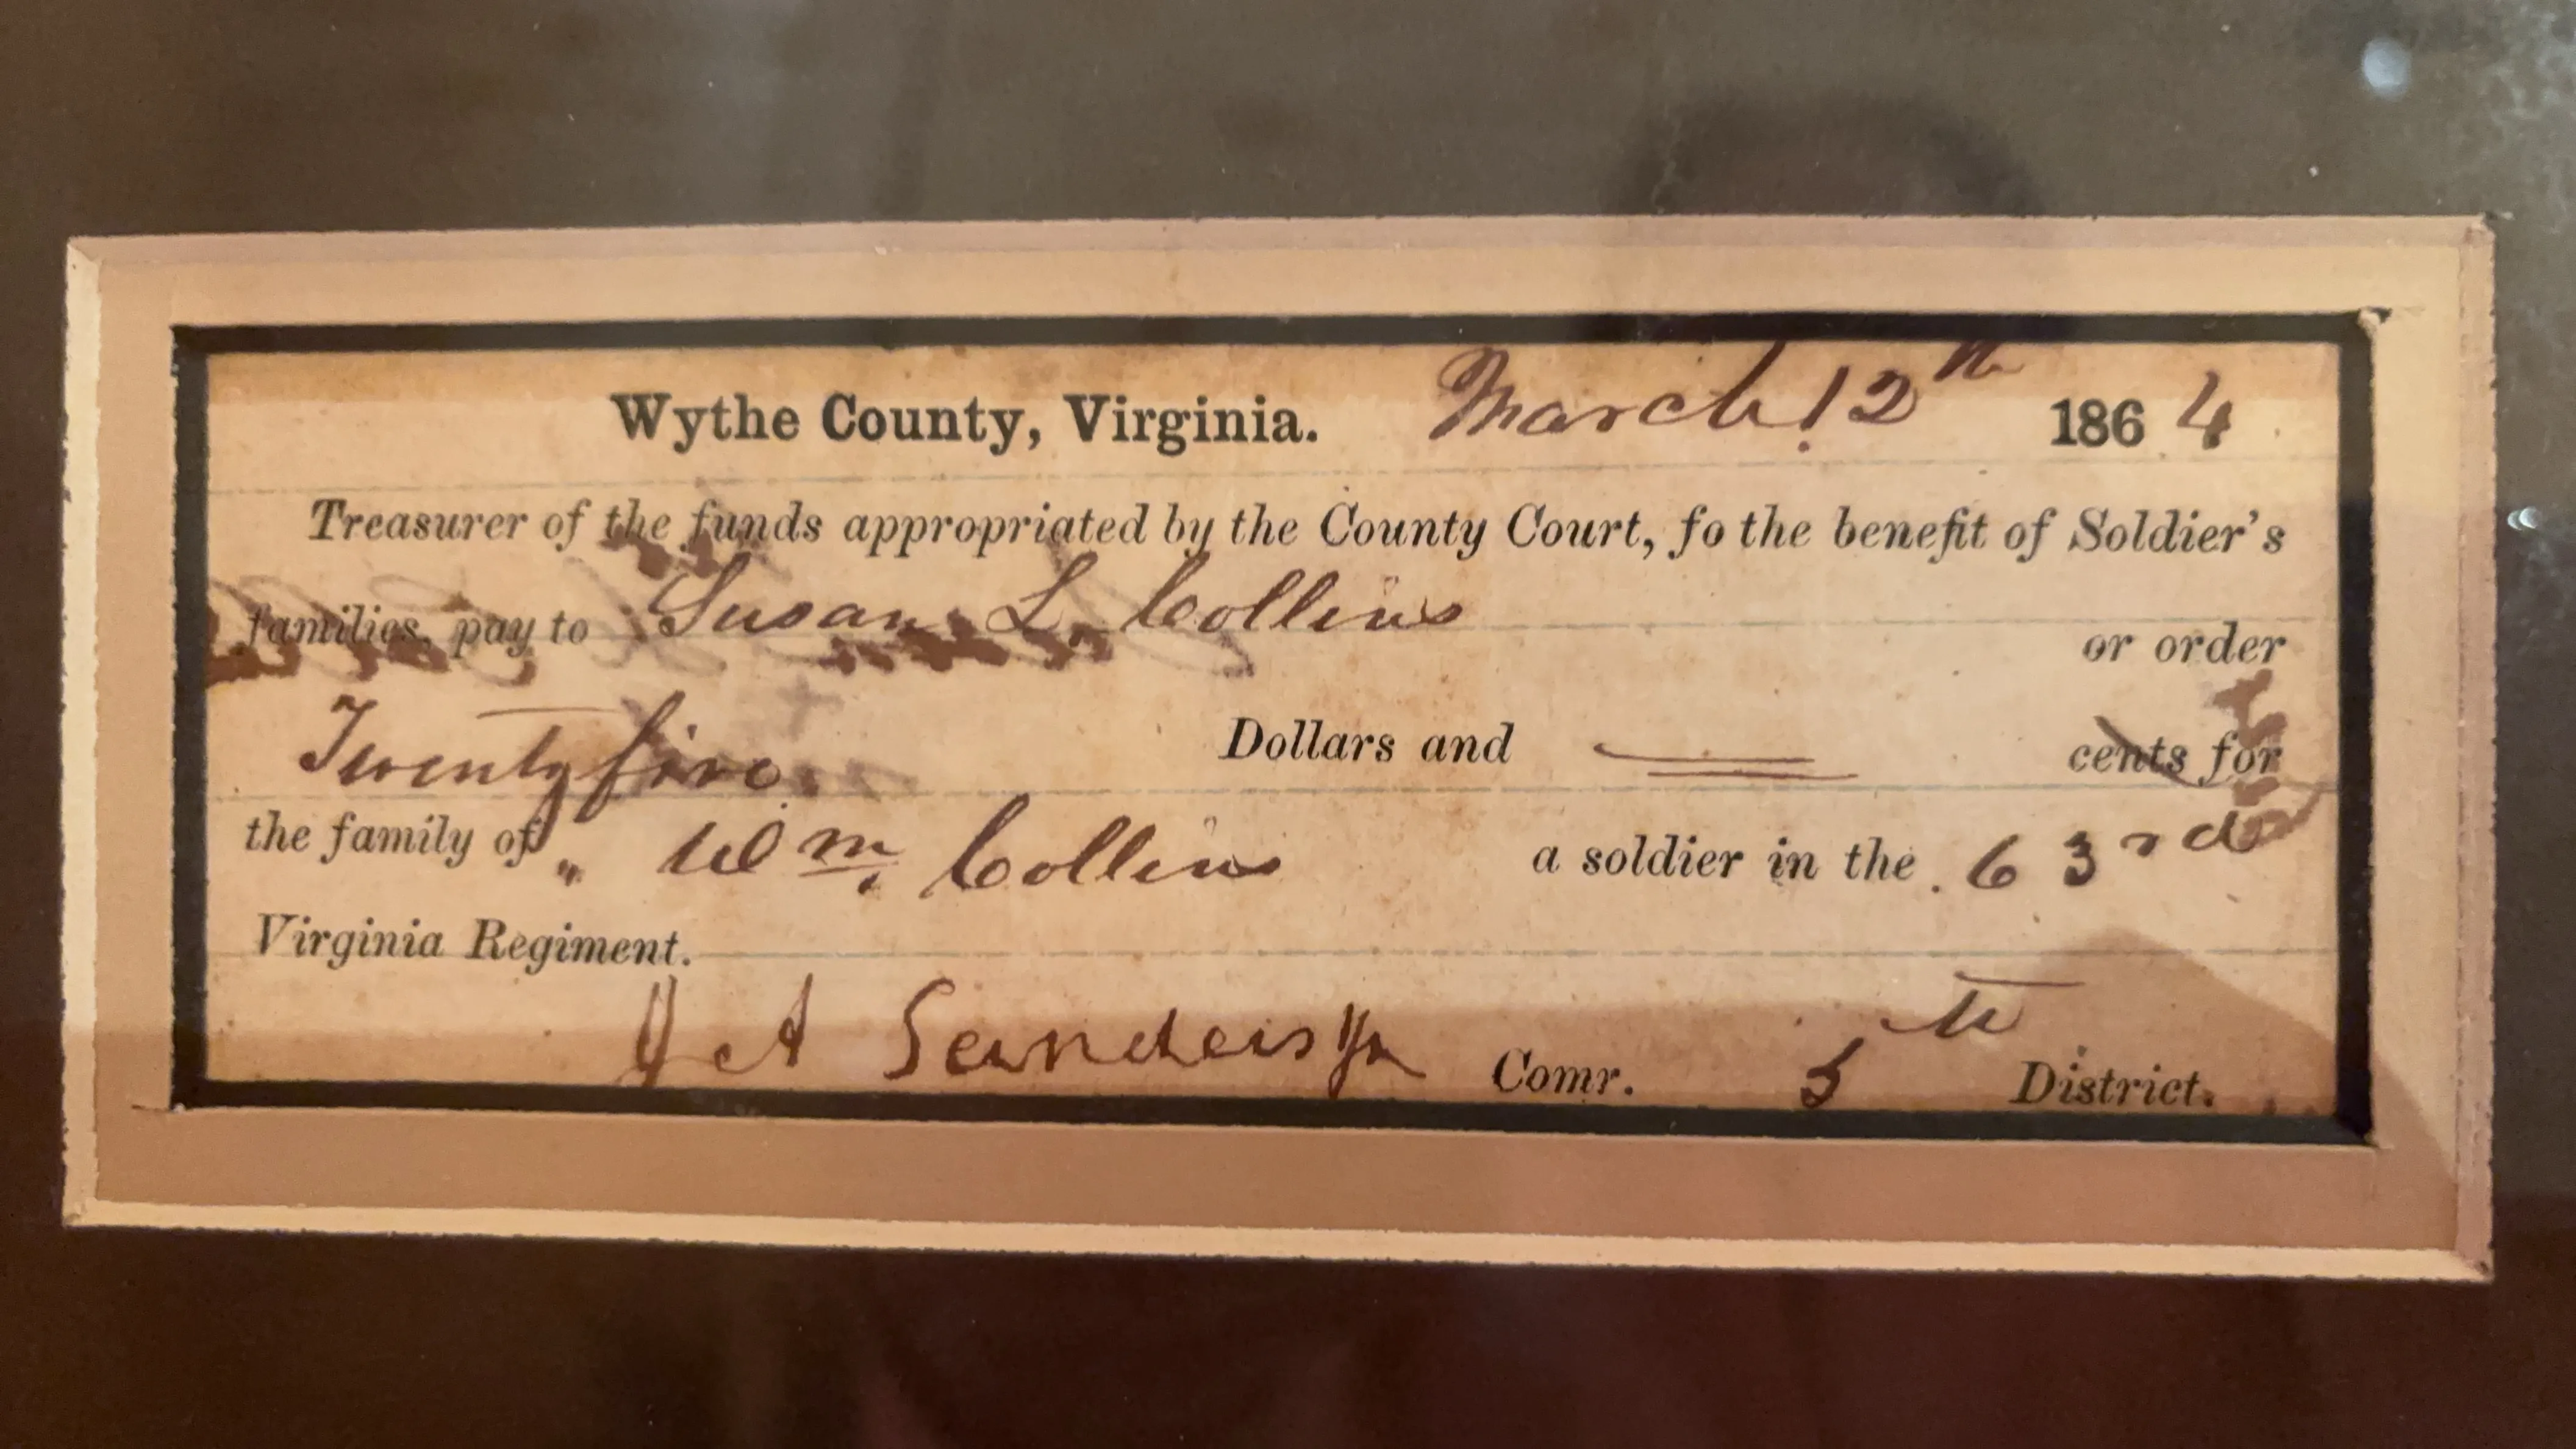 Wythe County, Virginia. March 12th 1864
Treasurer of the funds appropriated by the County Court, fo the benefit of Soldier's
families, pay to Susan L. Collins or order
Twenty five Dollars and cents for
the family of " Wm. Collins a soldier in the 63rd
Virginia Regiment.
J A Sanders Jr Comr. 5th District.